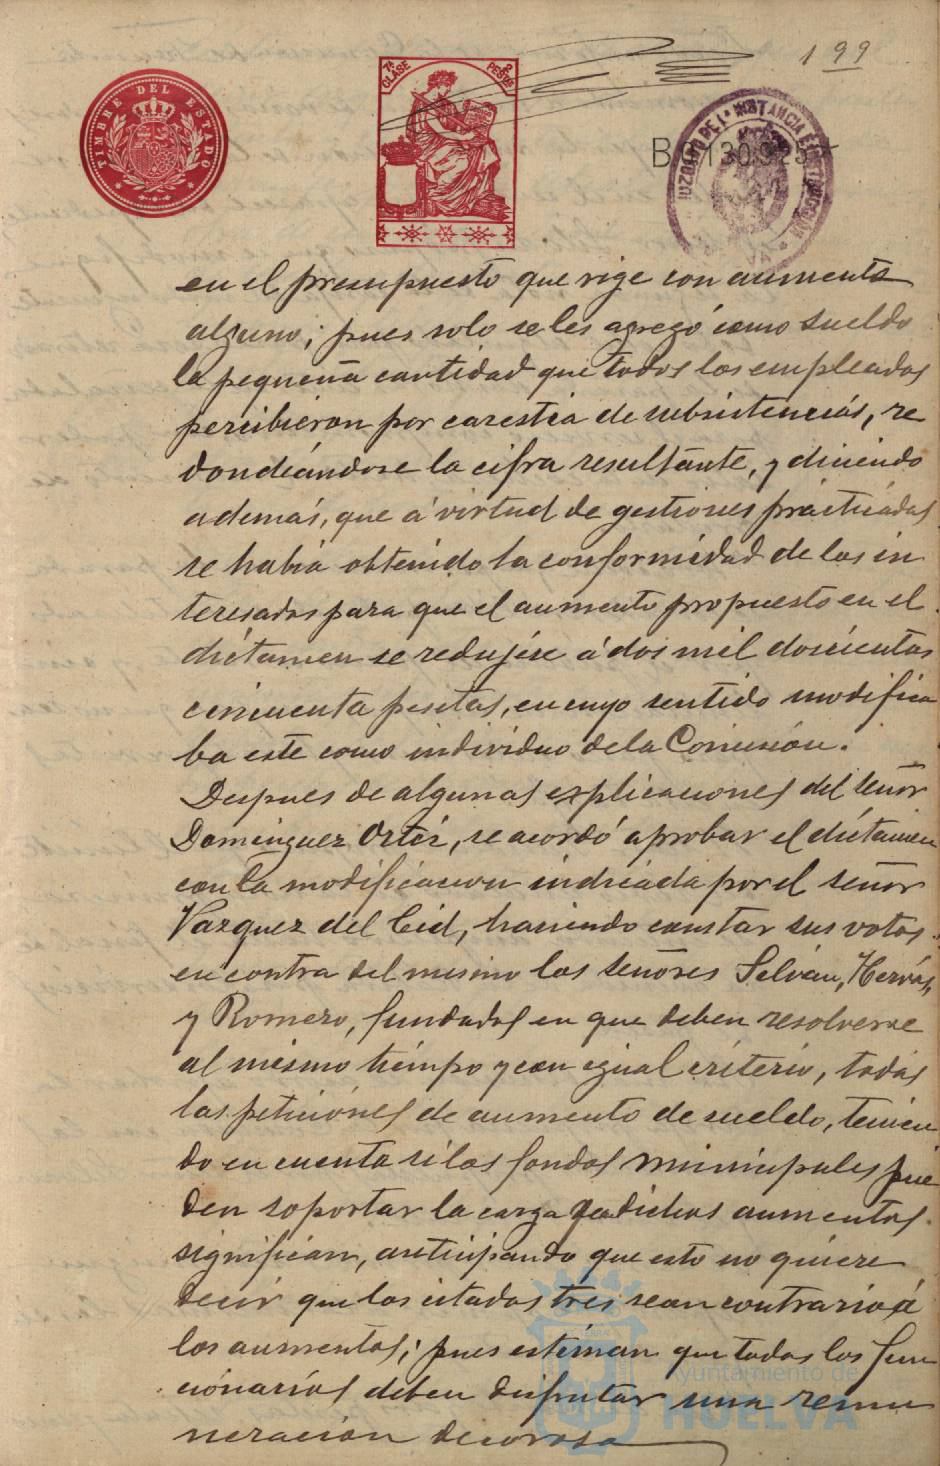 199
7ª CLASE 2 PESETAS
TIMBRE DEL ESTADO
JUZGADO DE 1ª INSTANCIA É INSTRUCCIÓN
en el presupuesto que rige con aumento
alguno; pues solo se les agregó como sueldo
la pequeña cantidad que todos los empleados
percibieron por carestia de subsistencias, re
dondeándose la cifra resultante, y diciendo
además, que á virtud de gestiones practicadas
se habia obtenido la conformidad de los in
teresados para que el aumento propuesto en el
dictamen se redujese á dos mil doscientas
cincuenta pesetas, en cuyo sentido modifica
ba este como individuo de la Comisión.
Despues de algunas explicaciones del señor
Dominguez Ortiz, se acordó aprobar el dictamen
con la modificacion indicada por el señor
Vazquez del Cid, haciendo constar sus votos
en contra del mismo los señores Selván, Hervás,
y Romero, fundados en que deben resolverse
al mismo tiempo y con igual criterio, todas
las peticiones de aumento de sueldo, tenien
do en cuenta si los fondos municipales pue
den soportar la carga q dichos aumentos
significan, anticipando que esto no quiere
decir que los citados tres sean contrarios á
los aumentos; pues estiman que todos los fun
cionarios deben disfrutar una remu
neración decorosa
Ayuntamiento de
HUELVA